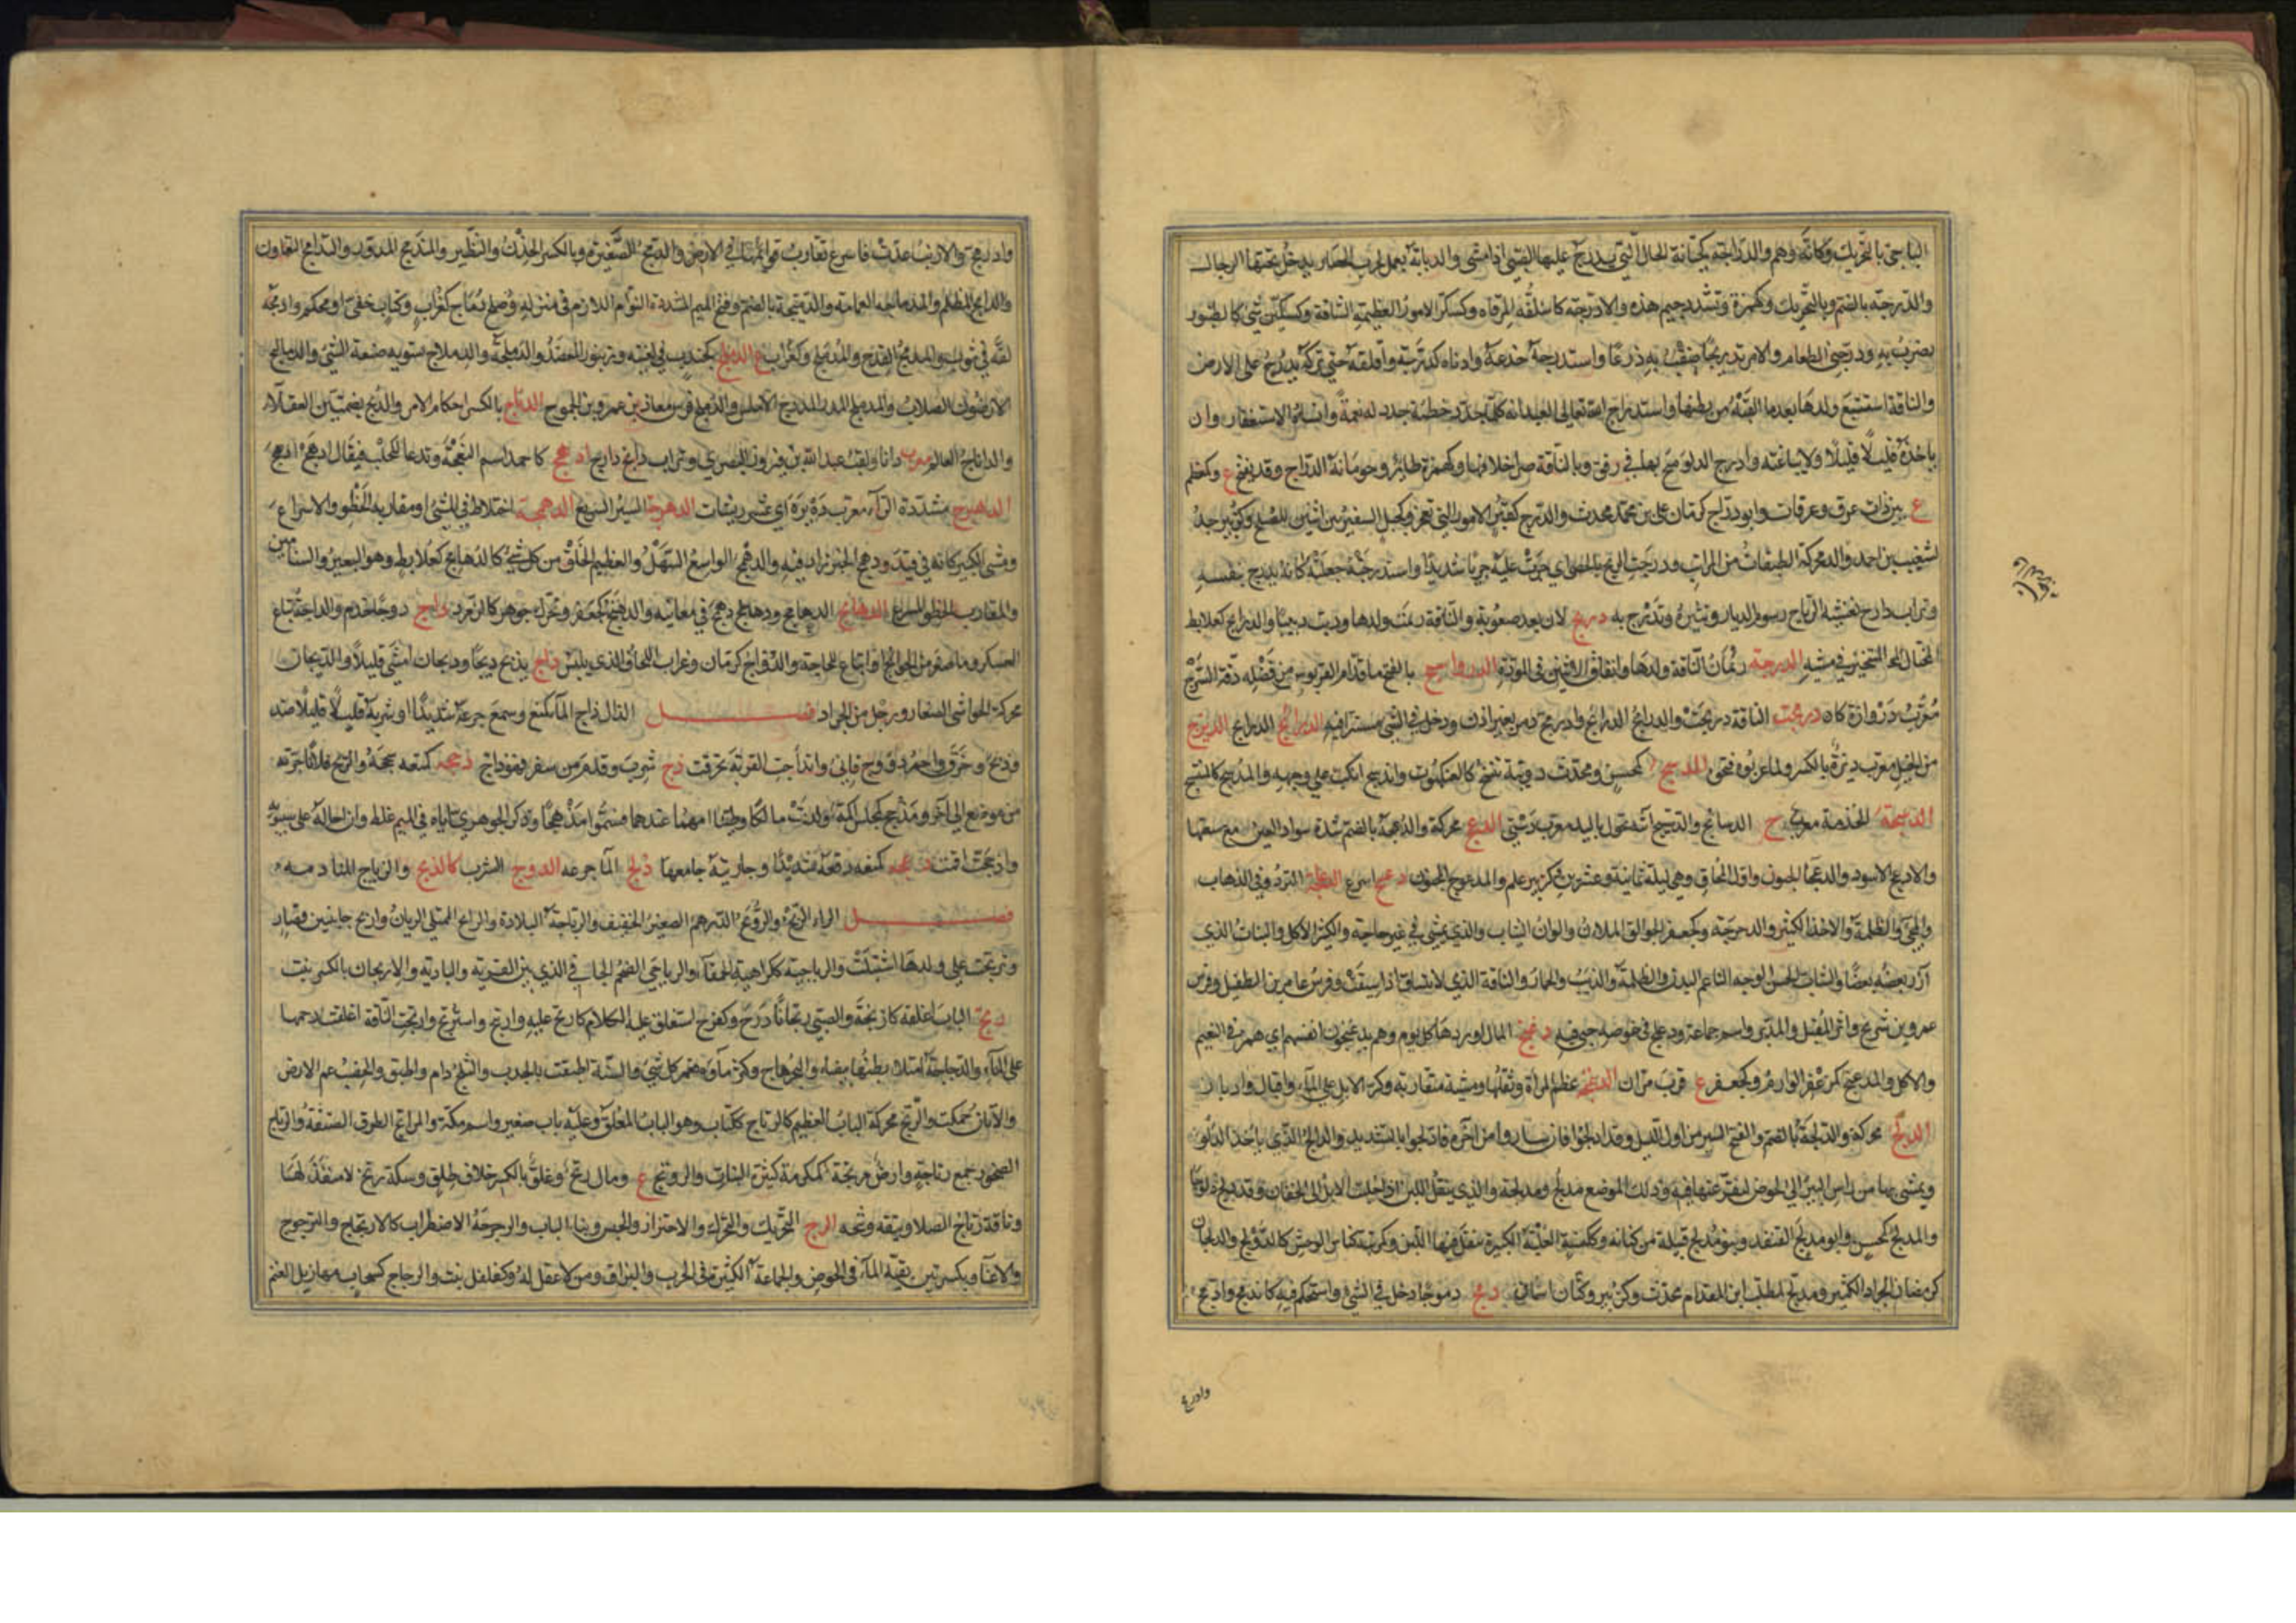 الباجي بالتحريك وكأنه وهم والدراجة كجبانة الحال التي يدرج عليها الصبي اذا مشى والدبابة تعمل لحرب الحصار يدخل تحتها الرجال
والدرجة بالضم وبالتحريك وكهمزة وتشدد جيم هذه والادرجة كاسكفة المرقاة وكسكر الامور العظيمة الشاقة وكسكين شئ كالطنبور
يضرب به ودرجني الطعام والامر تدريجا ضقت به ذرعا واستدرجه خدعه وادناه كدرجه واقلقه حتى تركه يدرج على الارض
والناقة استتبعت ولدها بعدما القته من بطنها واستدراج الله تعالى العبد انه كلما جدد خطيئة جدد له نعمة وانساه الاستغفار وان
ياخذه قليلا قليلا ولا يباغته وادرج الدلو متح بها في رفق وبالناقة صر اخلافها وكهمزة طائر وحومانة الدراج وقد يفتح ع وكخلم
ع بين ذات عرق وعرفات وابو دراج كرمان على بن محمد محدث والدرج كقبر الامور التي تعجز وكجبل السفير بين اثنين للصلح وكزبير جد
لشعيب بن احمد والدرج محركة الطبقات من المراتب ودرجت الريح بالحصى اي جرت عليه جريا شديدا واستدرجته جعلته كانه يدرج بنفسه
وتراب دارج تغشيه الرياح رسوم الديار وتثيره وتدرج به دربج لان بعد صعوبة والناقة رئمت ولدها ودبت دبيبا والدرابج كعلابط
المختال المتبختر في مشيه الدرجة رئمان الناقة ولدها واتفاق الاثنين في المودة الدرواسنج بالفتح ما قدام القربوس من فضلة دفة السرج
معرب دروازه كاه درمجت الناقة دربجت والدرامج الدرابج وادرمج دمر بغير اذن ودخل في الشئ مستترا فيه الدرانج الدرابج الديزج
من الخيل معرب ديزه بالكسر ولما عربوه فتحوه المدسج كمحسن ومحدث دويبة تنسج كالعنكبوت واندسج انكب على وجهه والمدسج كالمنسج
الدستجة الحزمة معرب ج الدساتج والدستيج آنية تحول باليد معرب دستي الدعج محركة والدعجة بالضم شدة سواد العين مع سعتها
والادعج الاسود والدعجاء الجنون واول المحاق وهي ليلة ثمانية وعشرين وكزبير علم والمدعوج المجنون دعسج اسرع الدعلجة التردد في الذهاب
والمجئ والظلمة والاخذ الكثير والدحرجة وكجعفر الجوالق الملآن والوان الثياب والذي يمشى في غير حاجة والكثير الاكل والنبات الذي
آزر بعضه بعضا والشاب الحسن الوجه الناعم البدن والظلمة والذئب والحمار والناقة التي لا تنساق اذا سيقت وفرس عامر بن الطفيل وفرس
عمرو بن شريح واثر المقبل والمدبر واسم جماعة ودعلج في حوضه جبى فيه دغبج المال اوردها كل يوم وهم يدغبجون انفسهم اي هم في النعيم
والاكل والمدغبج كمزعفر الوارم وكجعفر ع قرب مران الدغنجة عظم المرأة وثقلها ومشية متقاربة وكر الابل على الماء واقبال وادبار
الدلج محركة والدلجة بالضم والفتح السير من اول الليل وقد ادلجوا فان ساروا من آخره فادلجوا بالتشديد والدالج الذي ياخذ الدلو
ويمشى بها من راس البئر الى الحوض ليفرغها فيه وذلك الموضع مدلج ومدلجة والذي ينقل اللبن اذا حلبت الابل الى الجفان وقد دلج دلوجا
والمدلج كمحسن وابو مدلج القنفذ وبنو مدلج قبيلة من كنانة وكمكنسة العلبة الكبيرة ينقل فيها اللبن وكمرتبة كناس الوحش كالدولج والدلجان
كرمضان الجراد الكثير ومدلج كمطلب ابن المقدام محدث وكزبير وكتان اسمان دمج دموجا دخل في الشئ واستحكم فيه كاندمج وادمج
وادرع
وادرمج والارنب عدت فاسرع تقارب قوائمها في الارض والدمج الضفيرة وبالكسر الخدن والنظير والمندمج المدور والتدامج التعاون
والدامج المظلم والمدماجة العمامة والدميجة بالضم وفتح الميم المشددة النوام اللازم في منزله وصلح دماج كغراب وكتاب خفى او محكم وادمجه
لفه في ثوب والمدمج القدح والمدملج وكغراب ع الدملج كجندب في لغتيه وزنبور المعضد والدملجة والدملاج تسوية صنعة الشئ والدماليج
الارضون الصلاب والمدملج المدرج الاملس والدملج فرس معاذ بن عمرو بن الجموح الدناج بالكسر احكام الامر والدنج بضمتين العقلاء
والداناج العالم معرب دانا ولقب عبد الله بن فيروز البصري وتراب دانج دارج ادهج كاحمد اسم النعجة وتدعا للحلب فيقال ادهج ادهج
الدهبرج مشددة الراء معرب ده پره اي عشر ريشات الدهرجة السير السريع الدهمجة اختلاط في المشى او مقاربة الخطو والاسراع
ومشى الكبير كانه في قيد ودهمج الخبر زاد فيه والدهمج الواسع السهل والعظيم الخلق من كل شئ كالدهامج كعلابط وهو البعير ذو السنامين
والمقارب الخطو المسرع الدهانج الدهامج ودهنج دهمج في معانيه والدهنج كجعفر ويحرك جوهر كالزمرد داج دوجا خدم والداجة تباع
العسكر وما صغر من الحوائج او اتباع للحاجة والدواج كرمان وغراب اللحاف الذي يلبس داج يديج ديجا وديجانا مشى قليلا والديجان
محركة الحواشى الصغار ورجل من الجراد فصل الذال ذاج الماء كمنع وسمع جرعه شديدا او شربه قليلا قليلا ضد
وذبح وخرق واحمر ذؤوج قانئ وانذأجت القربة تخرقت ذج شرب وقدم من سفر فهو ذاج ذحجه كمنعه سحجه والريح فلانا جرته
من موضع الى آخر ومذحج كمجلس اكمة ولدت مالكا وطيئا امهما عندها فسموا مذحجا وذكر الجوهري اياه في الميم غلط وان احاله على سيبويه
واذحجت اقمت ذعجه كمنعه دفعه شديدا وجاريته جامعها ذلج الماء جرعه الذوج الشرب كالذيج والذياج المنادمة
فصل الراء الربج والروبج الدرهم الصغير الخفيف والرباجة البلادة والرابج الممتلئ الريان واربج جاء ببنين قصار
وتربجت على ولدها اشبلت والرباجية ككراهية الحمقاء والرباجي الضخم الجافي الذي بين القرية والبادية والاربجان بالكسر نبت
رتج الباب اغلقه كارتجه والصبي رتجانا درج وكفرح استغلق عليه الكلام كارتج عليه وارتج واسترتج وارتجت الناقة اغلقت رحمها
على الماء والدجاجة امتلأ بطنها بيضا والبحر هاج وكثر ماؤه فغمر كل شئ والسنة اطبقت بالجدب والثلج دام واطبق والخصب عم الارض
والاتان حملت والرتج محركة الباب العظيم كالرتاج ككتاب وهو الباب المغلق وعليه باب صغير واسم مكة والمراتج الطرق الضيقة والرتاج
الصخور جمع رتاجة وارض مرتجة كمكرمة كثيرة النبات والرويتج ع ومال رتج وغلق بالكسر خلاف طلق وسكة رتج لا منفذ لها
وناقة رتاج الصلا وثيقة وثيجة الرج التحريك والتحرك والاهتزاز والحبس وبناء الباب والرجرجة الاضطراب كالارتجاج والترجرج
والاعياء وبكسرتين بقية الماء في الحوض والجماعة الكثيرة في الحرب والبزاق ومن لا عقل له وكفلفل نبت والرجاج كسحاب مهازيل الغنم